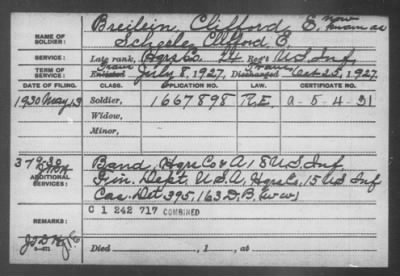 Breilein, Clifford E. now known as
NAME OF SOLDIER: Scheeler Clifford E.
SERVICE: Late rank, Hqrs Co. 24 Reg't U S Inf.
TERM OF SERVICE: Enlisted July 8, 1927, Discharged Oct 25, 1927.
DATE OF FILING. CLASS. APPLICATION NO. LAW. CERTIFICATE NO.
1930 May 13 Soldier, 1667898 R.E. a-5-4-31
Widow,
Minor,
ADDITIONAL SERVICES: Band, Hqrs Co & A 18 U S Inf
Gin. Dept. U.S.A., Hqrs Co. 15 U S Inf
Cas. Det 395, 163 D.B. (ww)
C 1 242 717 COMBINED
REMARKS:
Died , 1 , at